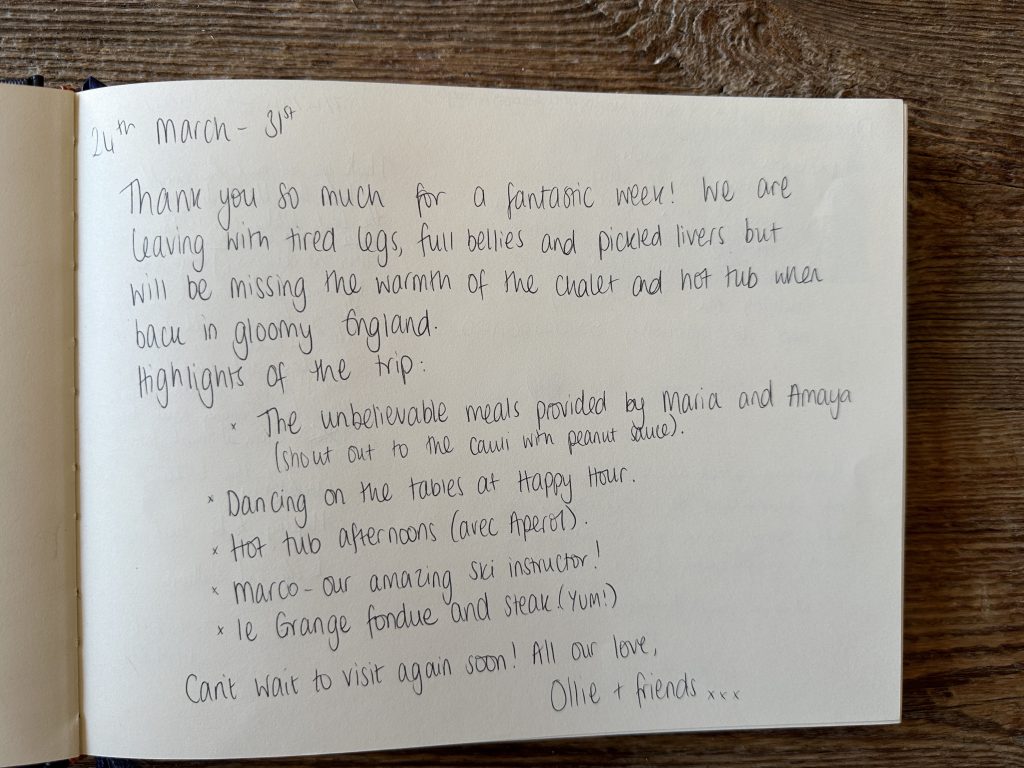 24th March - 31st
Thank you so much for a fantastic week! We are
leaving with tired legs, full bellies and pickled livers but
will be missing the warmth of the chalet and hot tub when
back in gloomy England.
Highlights of the trip:
x The unbelievable meals provided by Maria and Amaya
(shout out to the cauli with peanut sauce).
x Dancing on the tables at Happy Hour.
x Hot tub afternoons (avec Aperol).
x Marco - our amazing ski instructor!
x le Grange fondue and steak (Yum!)
Can't wait to visit again soon! All our love,
Ollie + friends xxx